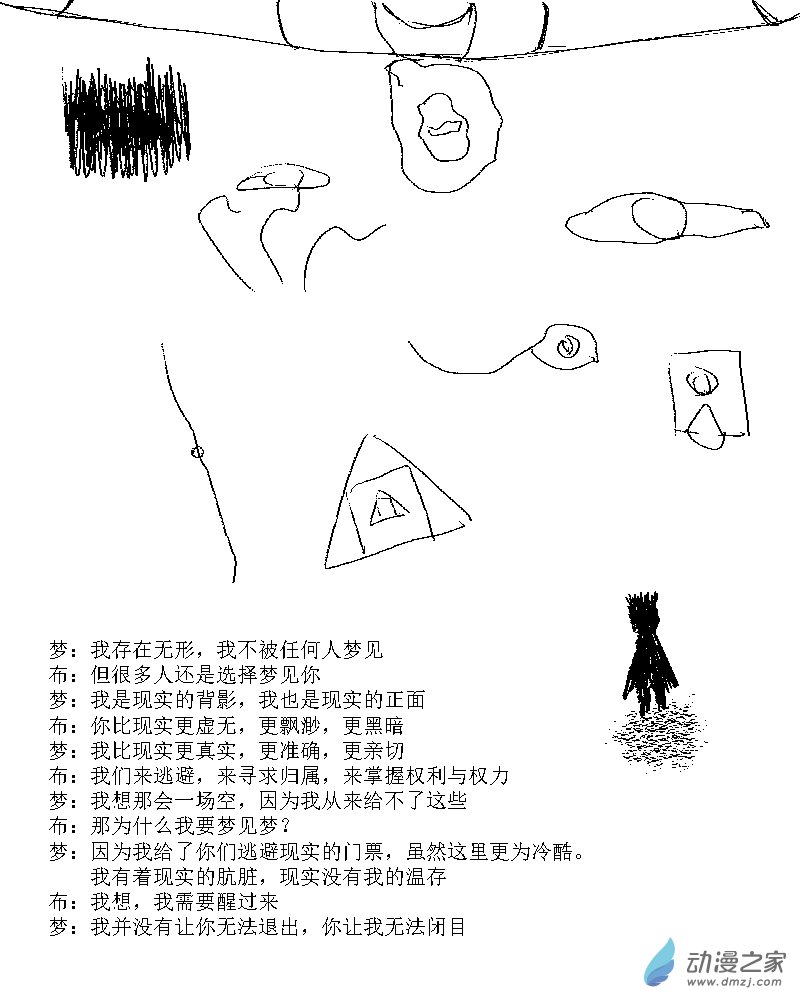 梦：我存在无形，我不被任何人梦见
布：但很多人还是选择梦见你
梦：我是现实的背影，我也是现实的正面
布：你比现实更虚无，更飘渺，更黑暗
梦：我比现实更真实，更准确，更亲切
布：我们来逃避，来寻求归属，来掌握权利与权力
梦：我想那会一场空，因为我从来给不了这些
布：那为什么我要梦见梦？
梦：因为我给了你们逃避现实的门票，虽然这里更为冷酷。
我有着现实的肮脏，现实没有我的温存
布：我想，我需要醒过来
梦：我并没有让你无法退出，你让我无法闭目
动漫之家
www.dmzj.com